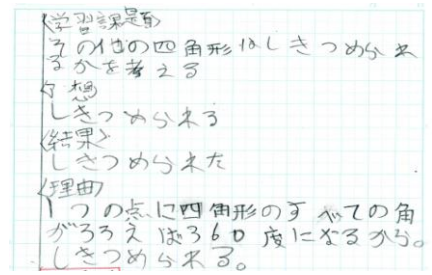 〈学習課題〉
その他の四角形はしきつめられ
るかを考える
予想
しきつめられる
〈結果〉
しきつめられた
〈理由〉
1つの点に四角形のすべての角
がそろえば360度になるから。
しきつめられる。